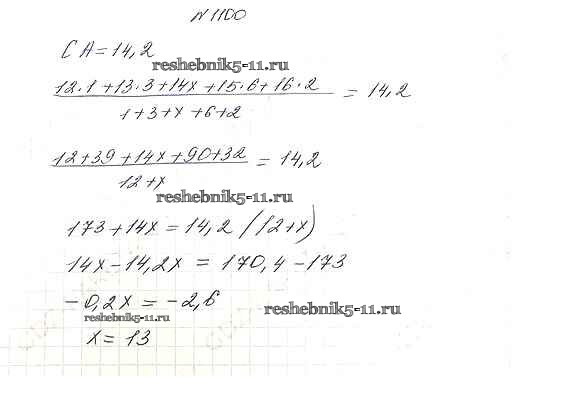 № 1100
СА = 14,2
reshebnik5-11.ru
12·1 + 13·3 + 14x + 15·6 + 16·2 = 14,2
1 + 3 + x + 6 + 2
12 + 39 + 14x + 90 + 32 = 14,2
12 + x
reshebnik5-11.ru
173 + 14x = 14,2 (12 + x)
14x - 14,2x = 170,4 - 173
-0,2x = -2,6
reshebnik5-11.ru
reshebnik5-11.ru
x = 13